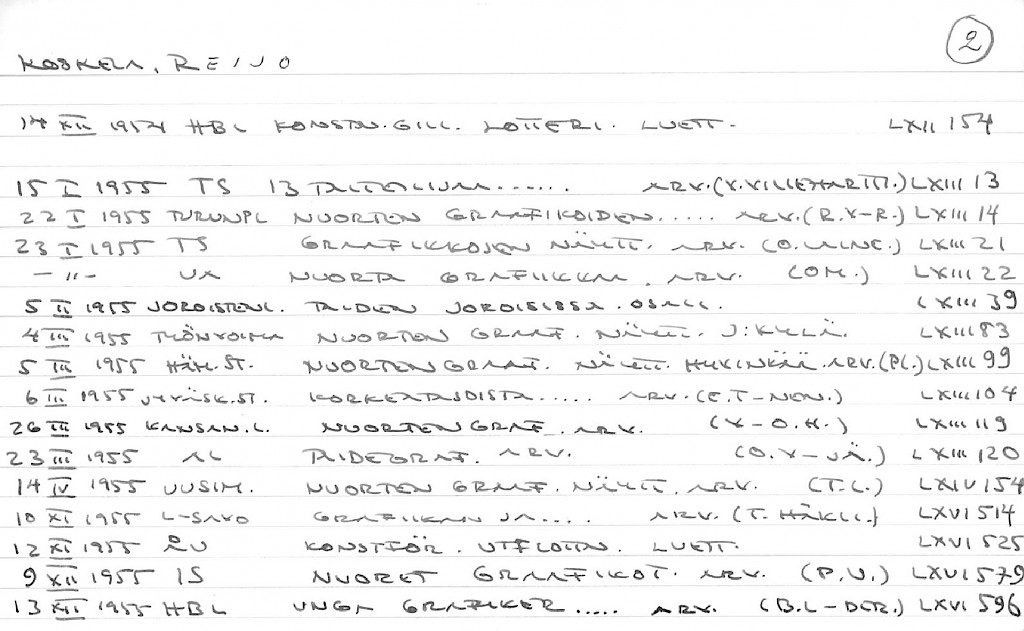 2
KOSKELA, REIJO
14 XII 1954 HBL KONSTN. GILL. LOTTERI. LUETT. LXII 154
15 I 1955 TS 13 TAITEILIJAA...... ARV. (Y. VILLEHARTTI.) LXIII 13
22 I 1955 TURUNPL NUORTEN GRAAFIKOIDEN..... ARV. (R. Y-R.) LXIII 14
23 I 1955 TS GRAAFIKKOJEN NÄYTT. ARV. (O. LAINE.) LXIII 21
-"- UA NUORTA GRAFIIKKAA ARV. (OM.) LXIII 22
5 II 1955 JOROISTENL. TAIDEN JOROISISSA. OSALL. LXIII 39
4 III 1955 TYÖNVOIMA NUORTEN GRAAF. NÄYTT. J:KYLÄ. LXIII 83
5 III 1955 HÄM. ST. NUORTEN GRAAF. NÄYTT. HYVINKÄÄ. ARV. (PL.) LXIII 99
6 III 1955 JYVÄSK. ST. KORKEATASOISTA..... ARV. (E. T-NEN.) LXIII 104
26 III 1955 KANSAN. L. NUORTEN GRAF. ARV. (Y-O.H.) LXIII 119
23 III 1955 AL TAIDEGRAF. ARV. (O. V-JÄ.) LXIII 120
14 IV 1955 UUSIM. NUORTEN GRAAF. NÄYTT. ARV. (T.L.) LXIV 154
10 XI 1955 L-SAVO GRAFIIKAN JA.... ARV. (T. HÄKLI.) LXVI 514
12 XI 1955 ÅU KONSTFÖR. UTLOTTN. LUETT. LXVI 525
9 XII 1955 IS NUORET GRAAFIKOT. ARV. (P.V.) LXVI 579
13 XII 1955 HBL UNGA GRAFIKER..... ARV. (B.L-DER.) LXVI 596